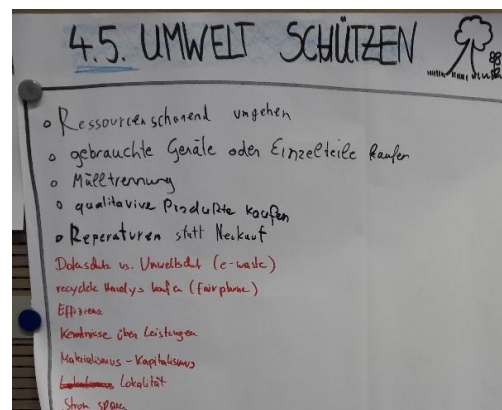 4.5. UMWELT SCHÜTZEN
Ressourcenschonend umgehen
gebrauchte Geräte oder Einzelteile kaufen
Mülltrennung
qualitavive Produkte kaufen
Reperaturen statt Neukauf
Datenschutz vs. Umweltschutz (e-waste)
recycelte Handys kaufen (fairphone)
Effizienz
Kenntnisse über Leistungen
Materialismus - Kapitalismus
Lokalität
Strom sparen